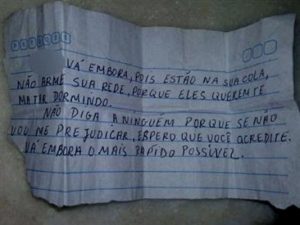 VÁ EMBORA, POIS ESTÃO NA SUA COLA,
NÃO ARME SUA REDE, PORQUE ELES QUEREM TE
MATAR DORMINDO.
NÃO DIGA A NINGUÉM PORQUE SE NÃO
VOU ME PREJUDICAR, ESPERO QUE VOCÊ ACREDITE.
VÁ EMBORA O MAIS RÁPIDO POSSÍVEL.